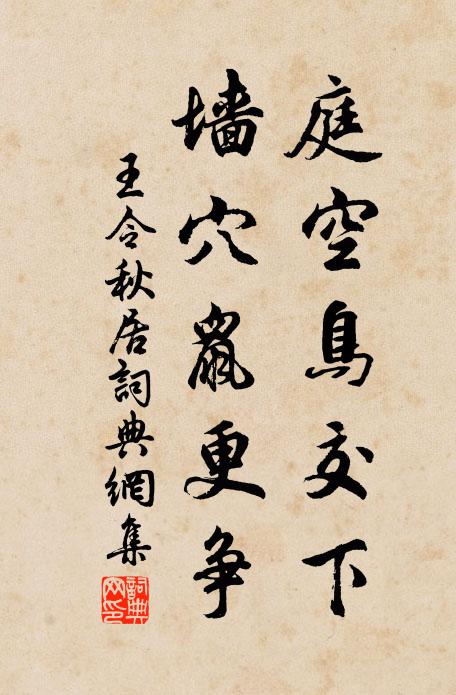 庭空鳥交下
墙穴鼠更争
王令秋居詞典網集
詞典网印